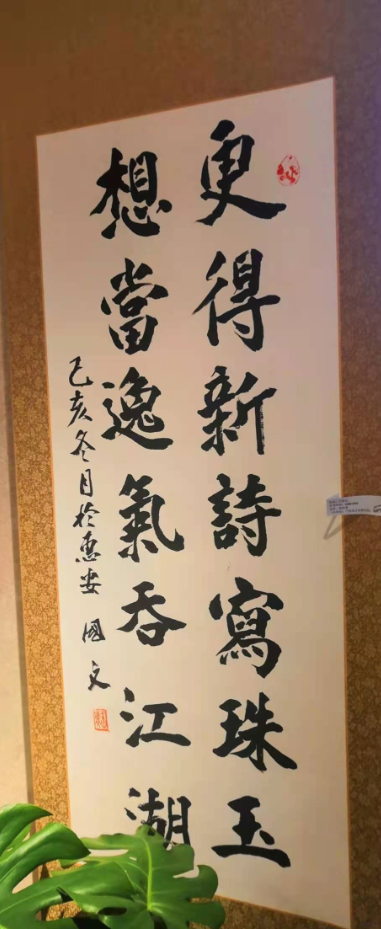 更得新詩寫珠玉
想當逸氣吞江湖
己亥冬月於惠安 國文